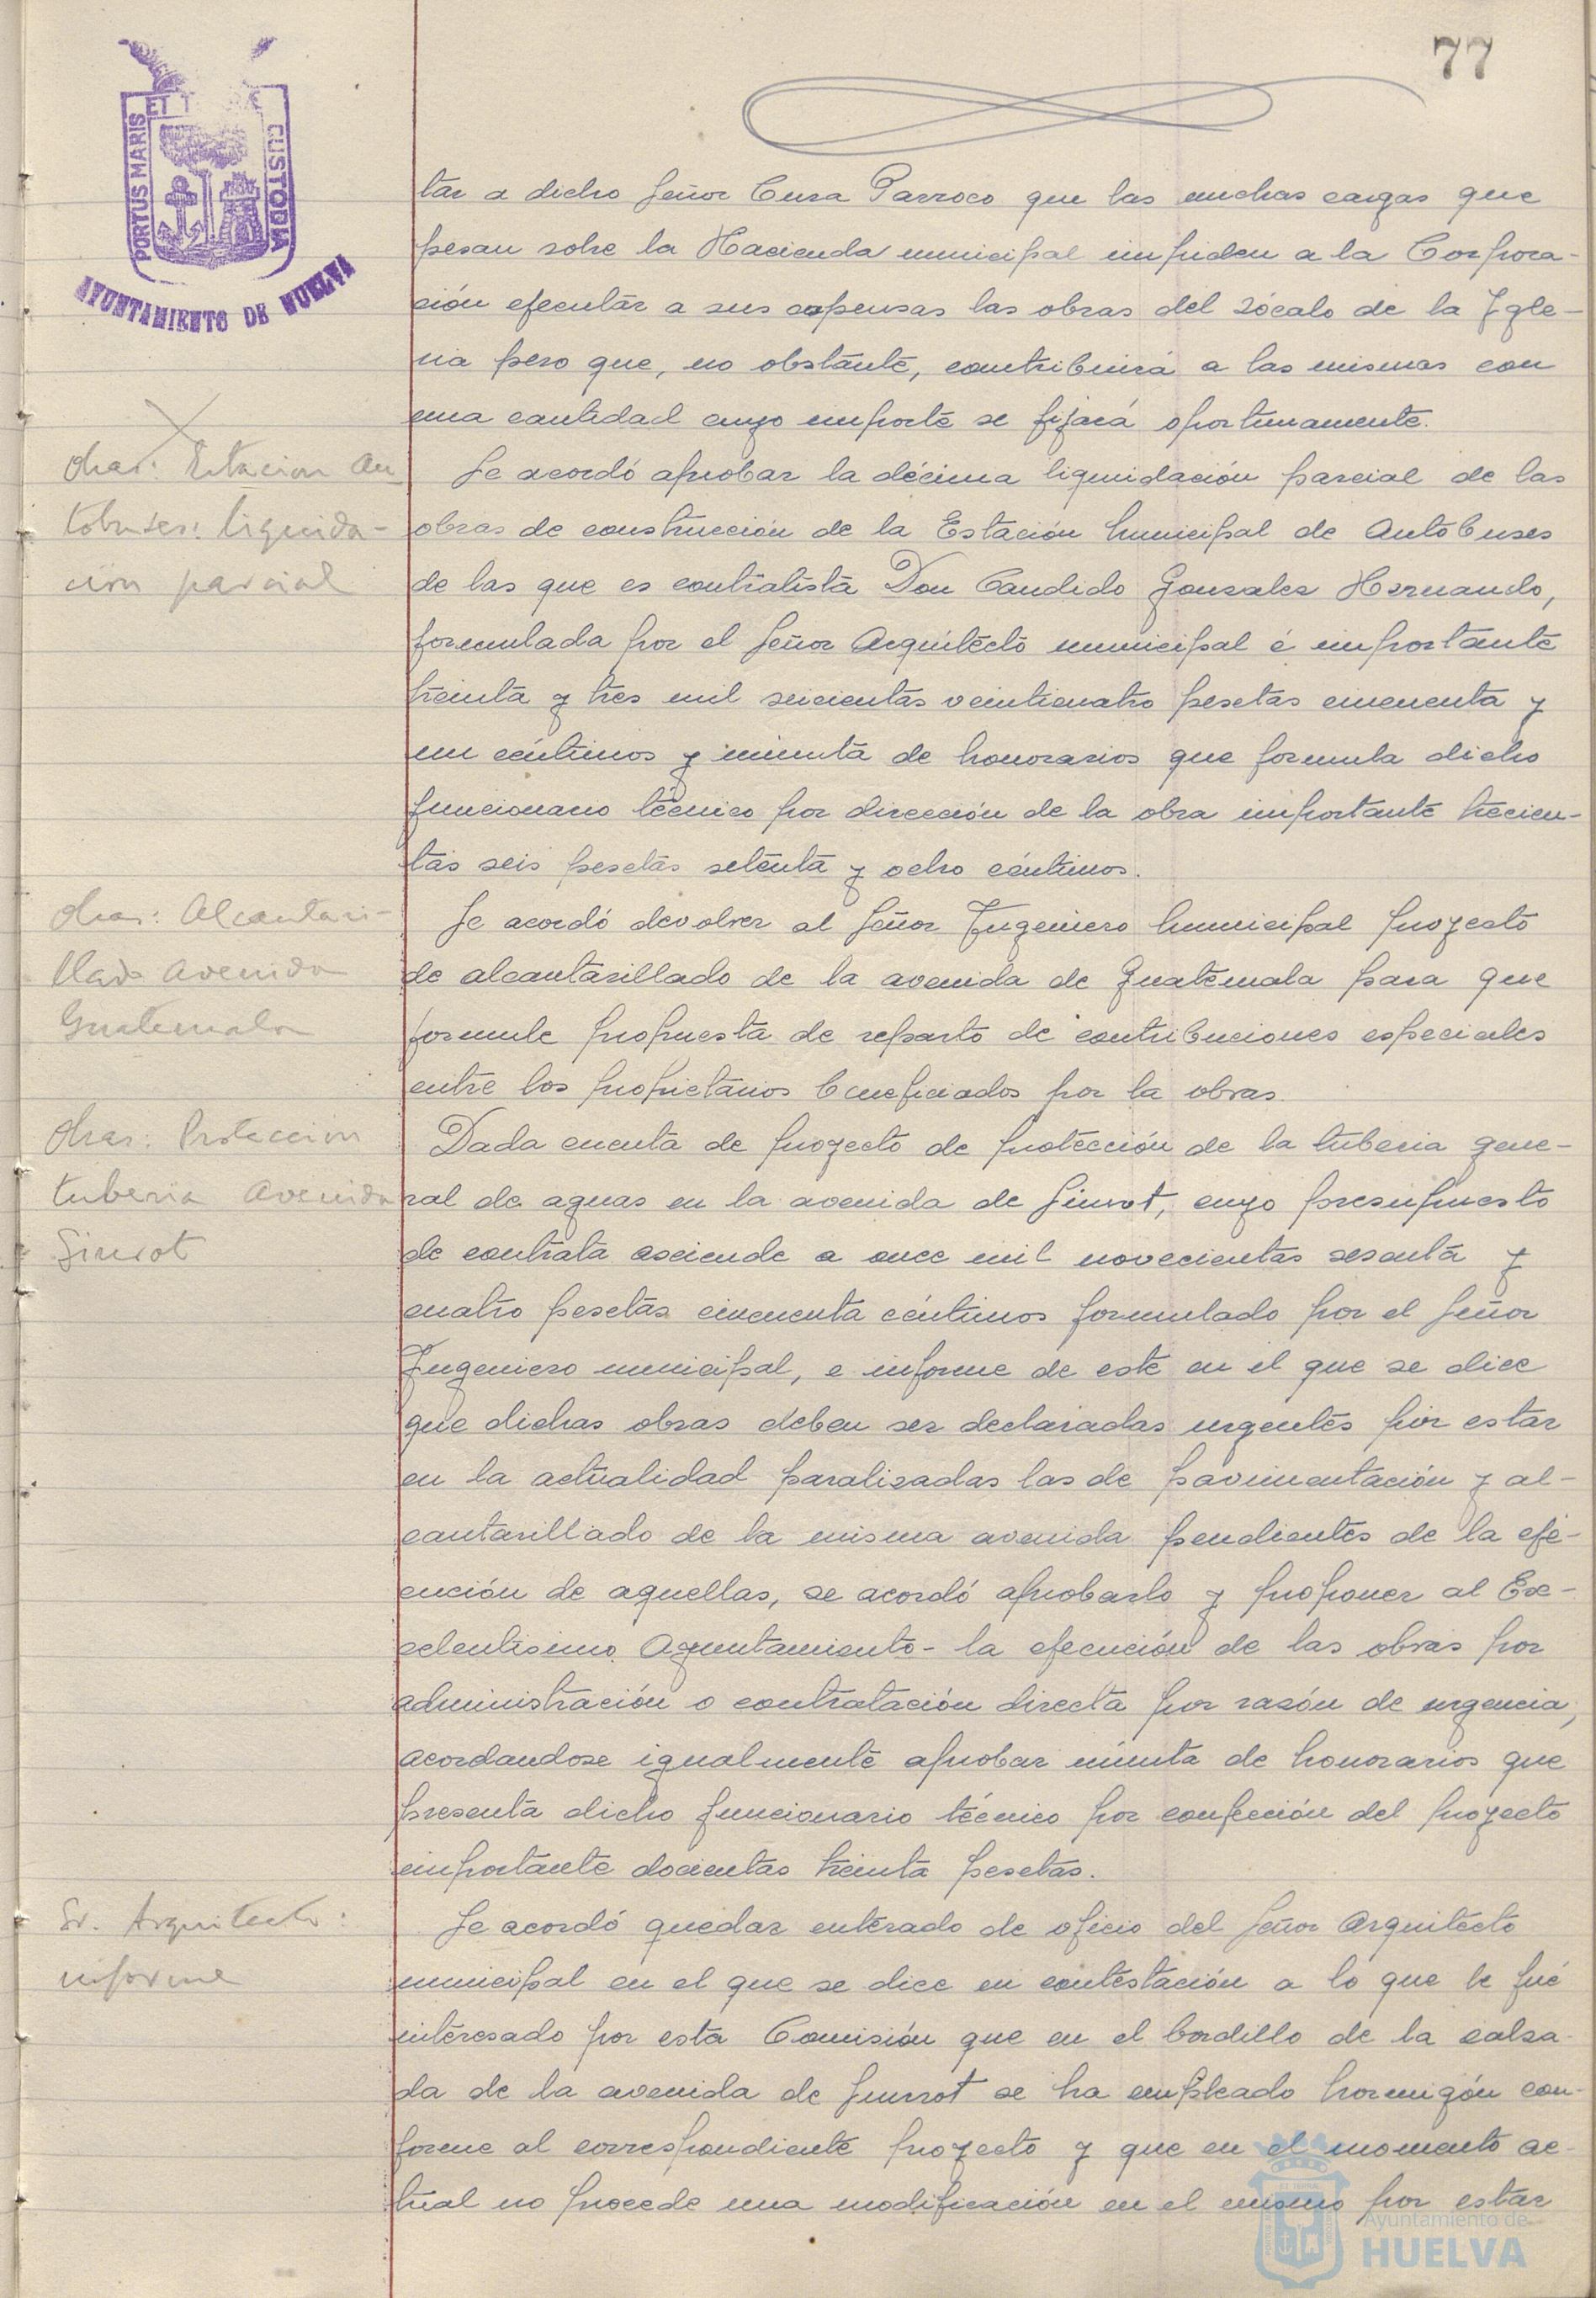 77
PORTUS MARIS ET T CUSTODIA
AYUNTAMIENTO DE HUELVA
tar a dicho Señor Cura Parroco que las muchas cargas que
pesan sobre la Hacienda municipal impiden a la Corpora-
ción ejecutar a sus expensas las obras del zócalo de la Igle-
sia pero que, no obstante, contribuirá a las mismas con
una cantidad cuyo importe se fijará oportunamente.
Obras: Estacion Au
tobuses: liquida-
cion parcial
Se acordó aprobar la décima liquidación parcial de las
obras de construcción de la Estación Municipal de Autobuses
de las que es contratista Don Candido Gonzalez Hernando,
formulada por el Señor Arquitecto municipal é importante
treinta y tres mil seicientas veinticuatro pesetas cincuenta y
un céntimos y minuta de honorarios que formula dicho
funcionario técnico por dirección de la obra importante trecien-
tas seis pesetas setenta y ocho céntimos.
Obras: Alcantari-
llado Avenida
Guatemala
Se acordó devolver al Señor Ingeniero Municipal proyecto
de alcantarillado de la avenida de Guatemala para que
formule propuesta de reparto de contribuciones especiales
entre los propietarios beneficiados por la obras.
Obras: Proteccion
tuberia Avenida
Siurot
Dada cuenta de proyecto de protección de la tuberia gene-
ral de aguas en la avenida de Siurot, cuyo presupuesto
de contrata asciende a once mil novecientas sesenta y
cuatro pesetas cincuenta céntimos formulado por el Señor
Ingeniero municipal, e informe de este en el que se dice
que dichas obras deben ser declaradas urgentes por estar
en la actualidad paralizadas las de pavimentación y al-
cantarillado de la misma avenida pendientes de la eje-
cución de aquellas, se acordó aprobarlo y proponer al Ex-
celentisimo Ayuntamiento- la ejecución de las obras por
administración o contratación directa por razón de urgencia,
acordandose igualmente aprobar minuta de honorarios que
presenta dicho funcionario técnico por confección del proyecto
importante docientas treinta pesetas.
Sr. Arquitecto:
informe
Se acordó quedar enterado de oficio del Señor Arquitecto
municipal en el que se dice en contestación a lo que le fué
interesado por esta Comisión que en el bordillo de la calza-
da de la avenida de Siurot se ha empleado hormigón con-
forme al correspondiente proyecto y que en el momento ac-
tual no procede una modificación en el mismo por estar
Ayuntamiento de
HUELVA